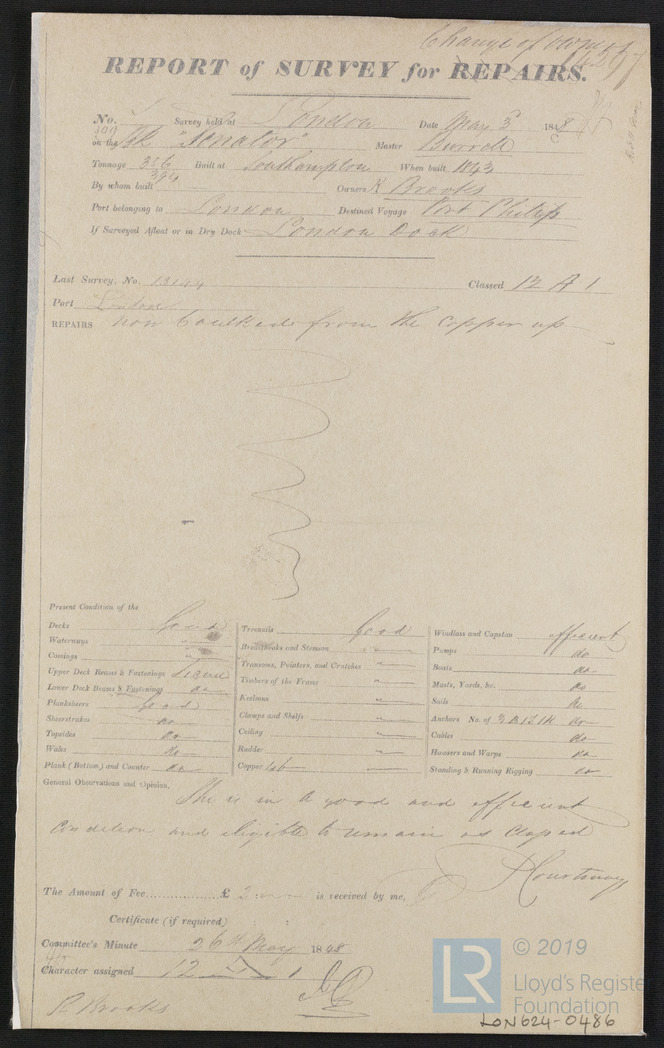 Change of owner
REPORT of SURVEY for REPAIRS.
No. Survey held at London Date May 3 1848
on the Bk "Senator" Master Burrell
Tonnage 316 Built at Southampton When built 1843
394
By whom built Owners R Brooks
Port belonging to London Destined Voyage Port Phillip
If Surveyed Afloat or in Dry Dock London Dock
Last Survey, No. 13144 Classed 12 A 1
Port London
REPAIRS now Caulked from the Copper up
Present Condition of the
Decks Good Treenails Good Windlass and Capstan efficient
Waterways " Breasthooks and Stemson " Pumps do
Comings " Transoms, Pointers, and Crutches " Boats do
Upper Deck Beams & Fastenings Timbers of the Frame " Masts, Yards, &c. do
Lower Deck Beams & Fastenings do Keelsons " Sails do
Planksheers Good Clamps and Shelfs " Anchors No. of 3 B 1 S 1 K do
Sheerstrakes do Ceiling " Cables do
Topsides do Rudder " Hawsers and Warps do
Wales do Copper " Standing & Running Rigging do
Plank (Bottom) and Counter do
General Observations and Opinion, She is in a good and efficient
Condition and eligible to remain as Classed
Courtenay
The Amount of Fee £ 2 is received by me,
Certificate (if required) : :
Committee's Minute 26th May 1848
Character assigned 12 A 1
R Brooks
LR
© 2019
Lloyd's Register
Foundation
LON624-0486